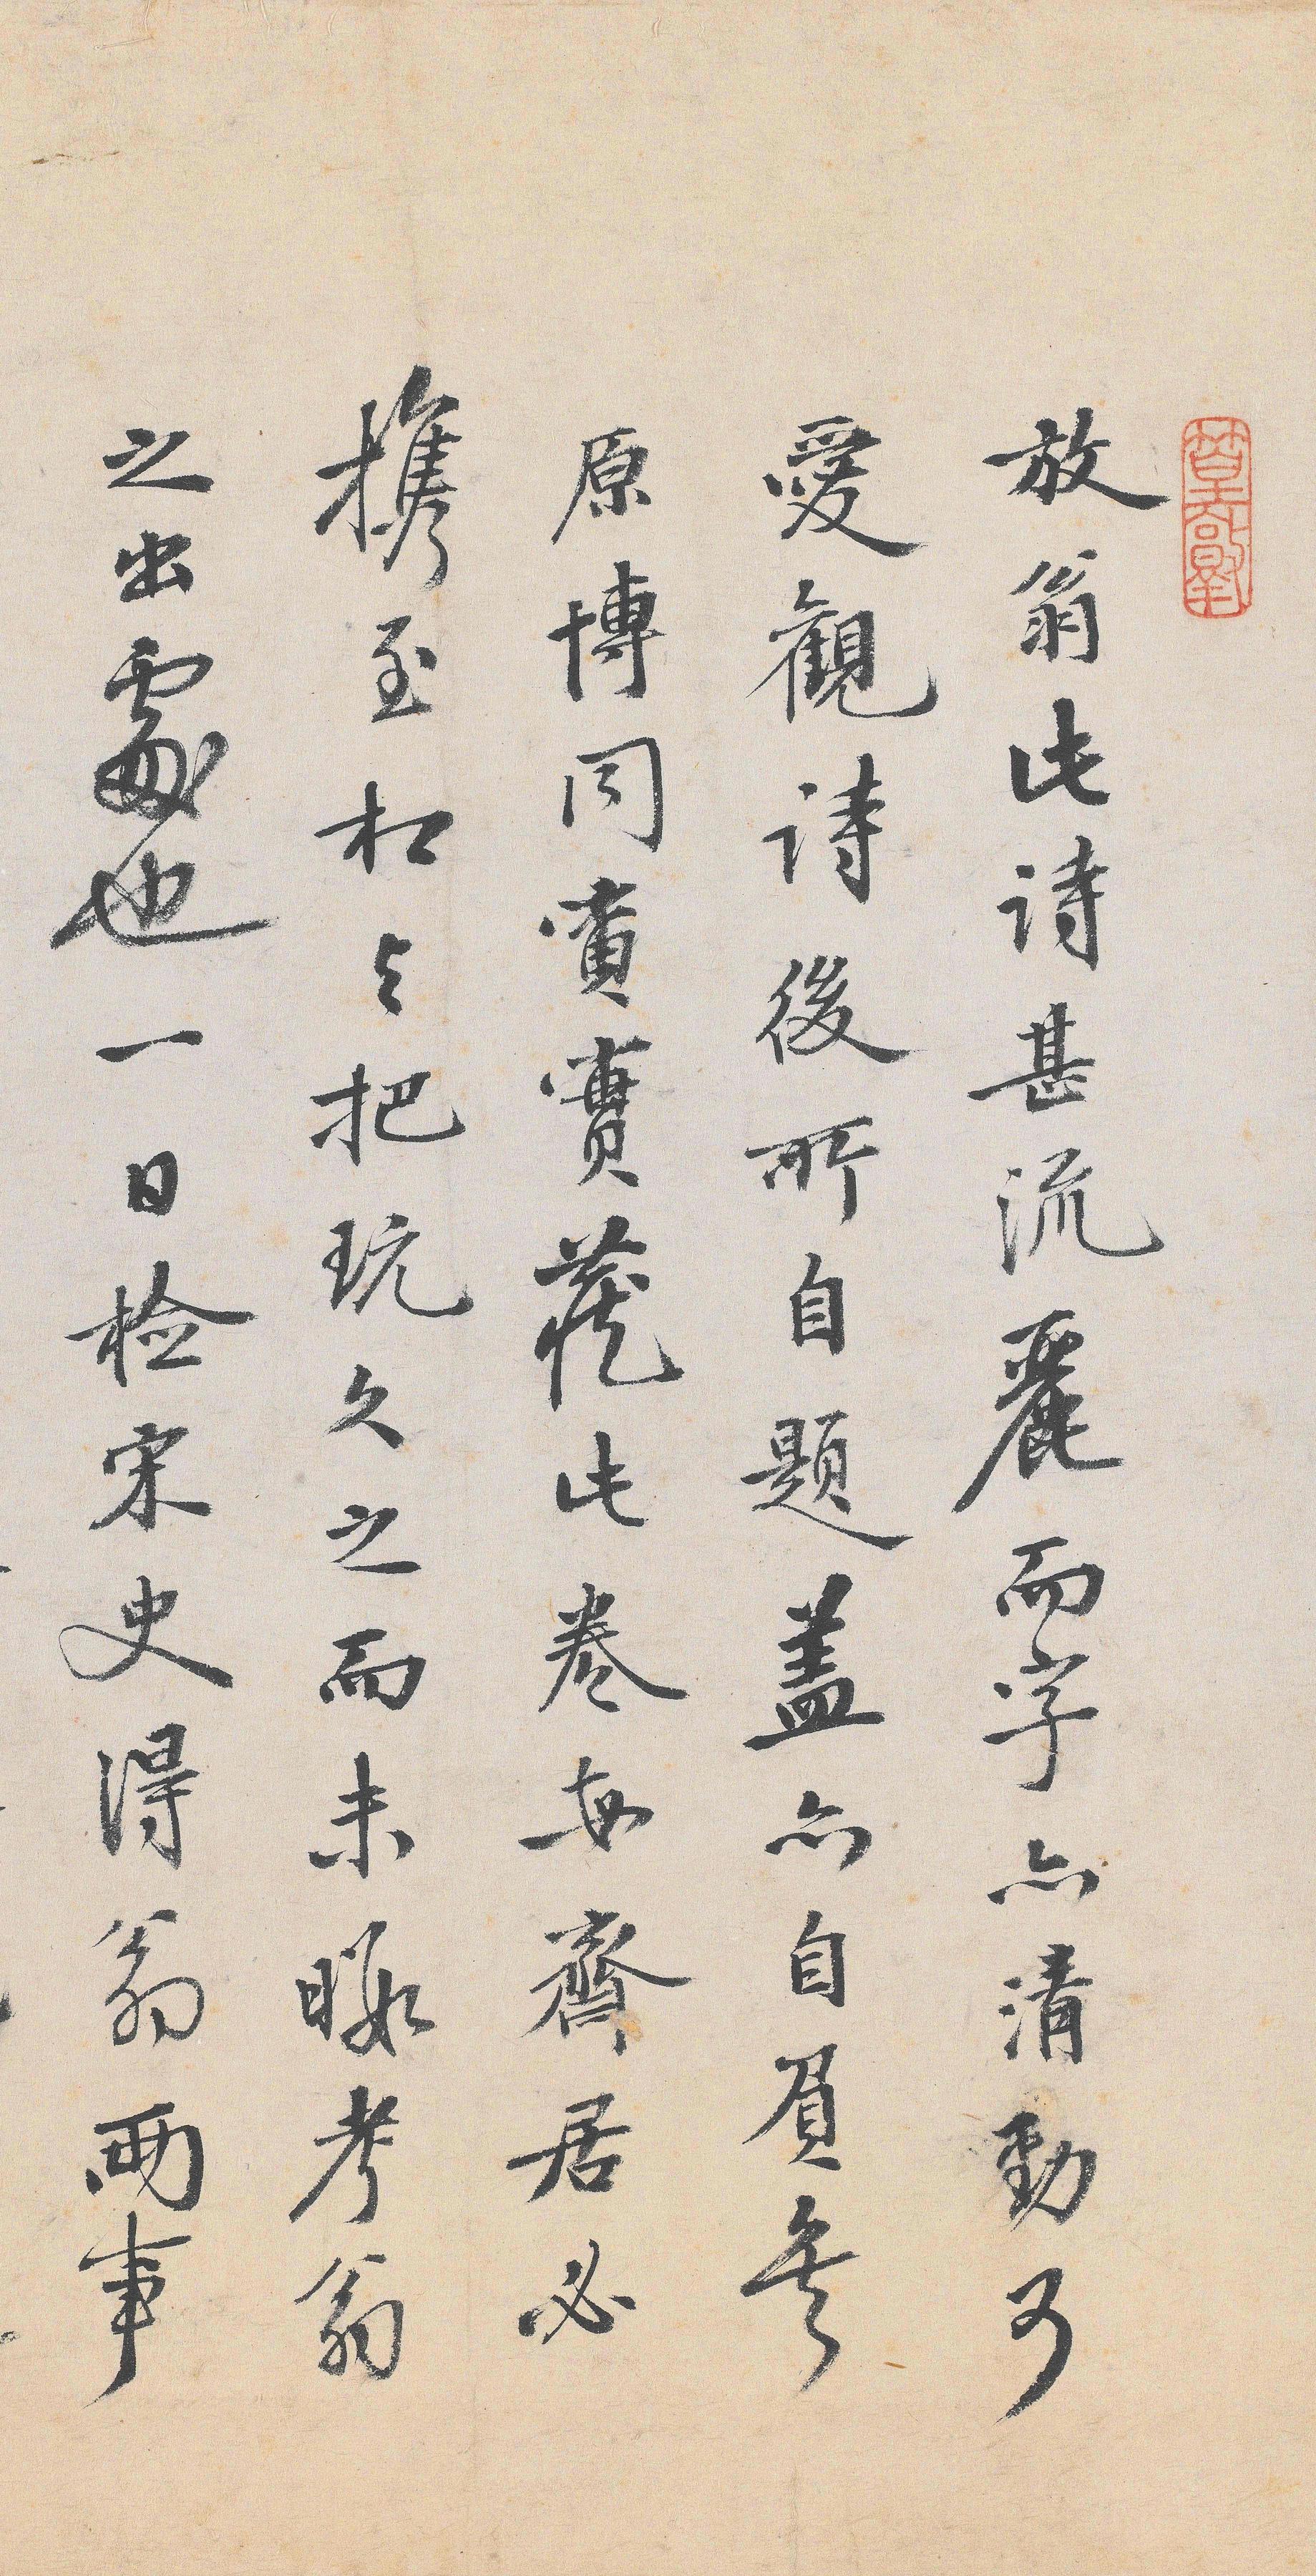 放翁此詩甚流麗而字亦清勁可
愛觀詩後所自題蓋亦自負矣
原博同寅寶藏此卷每齋居必
攜至相與把玩久之而未暇考翁
之出處也一日檢宋史得翁兩事